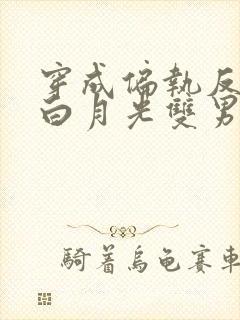 穿成偏執反
白月光雙男
騎着烏龜賽車